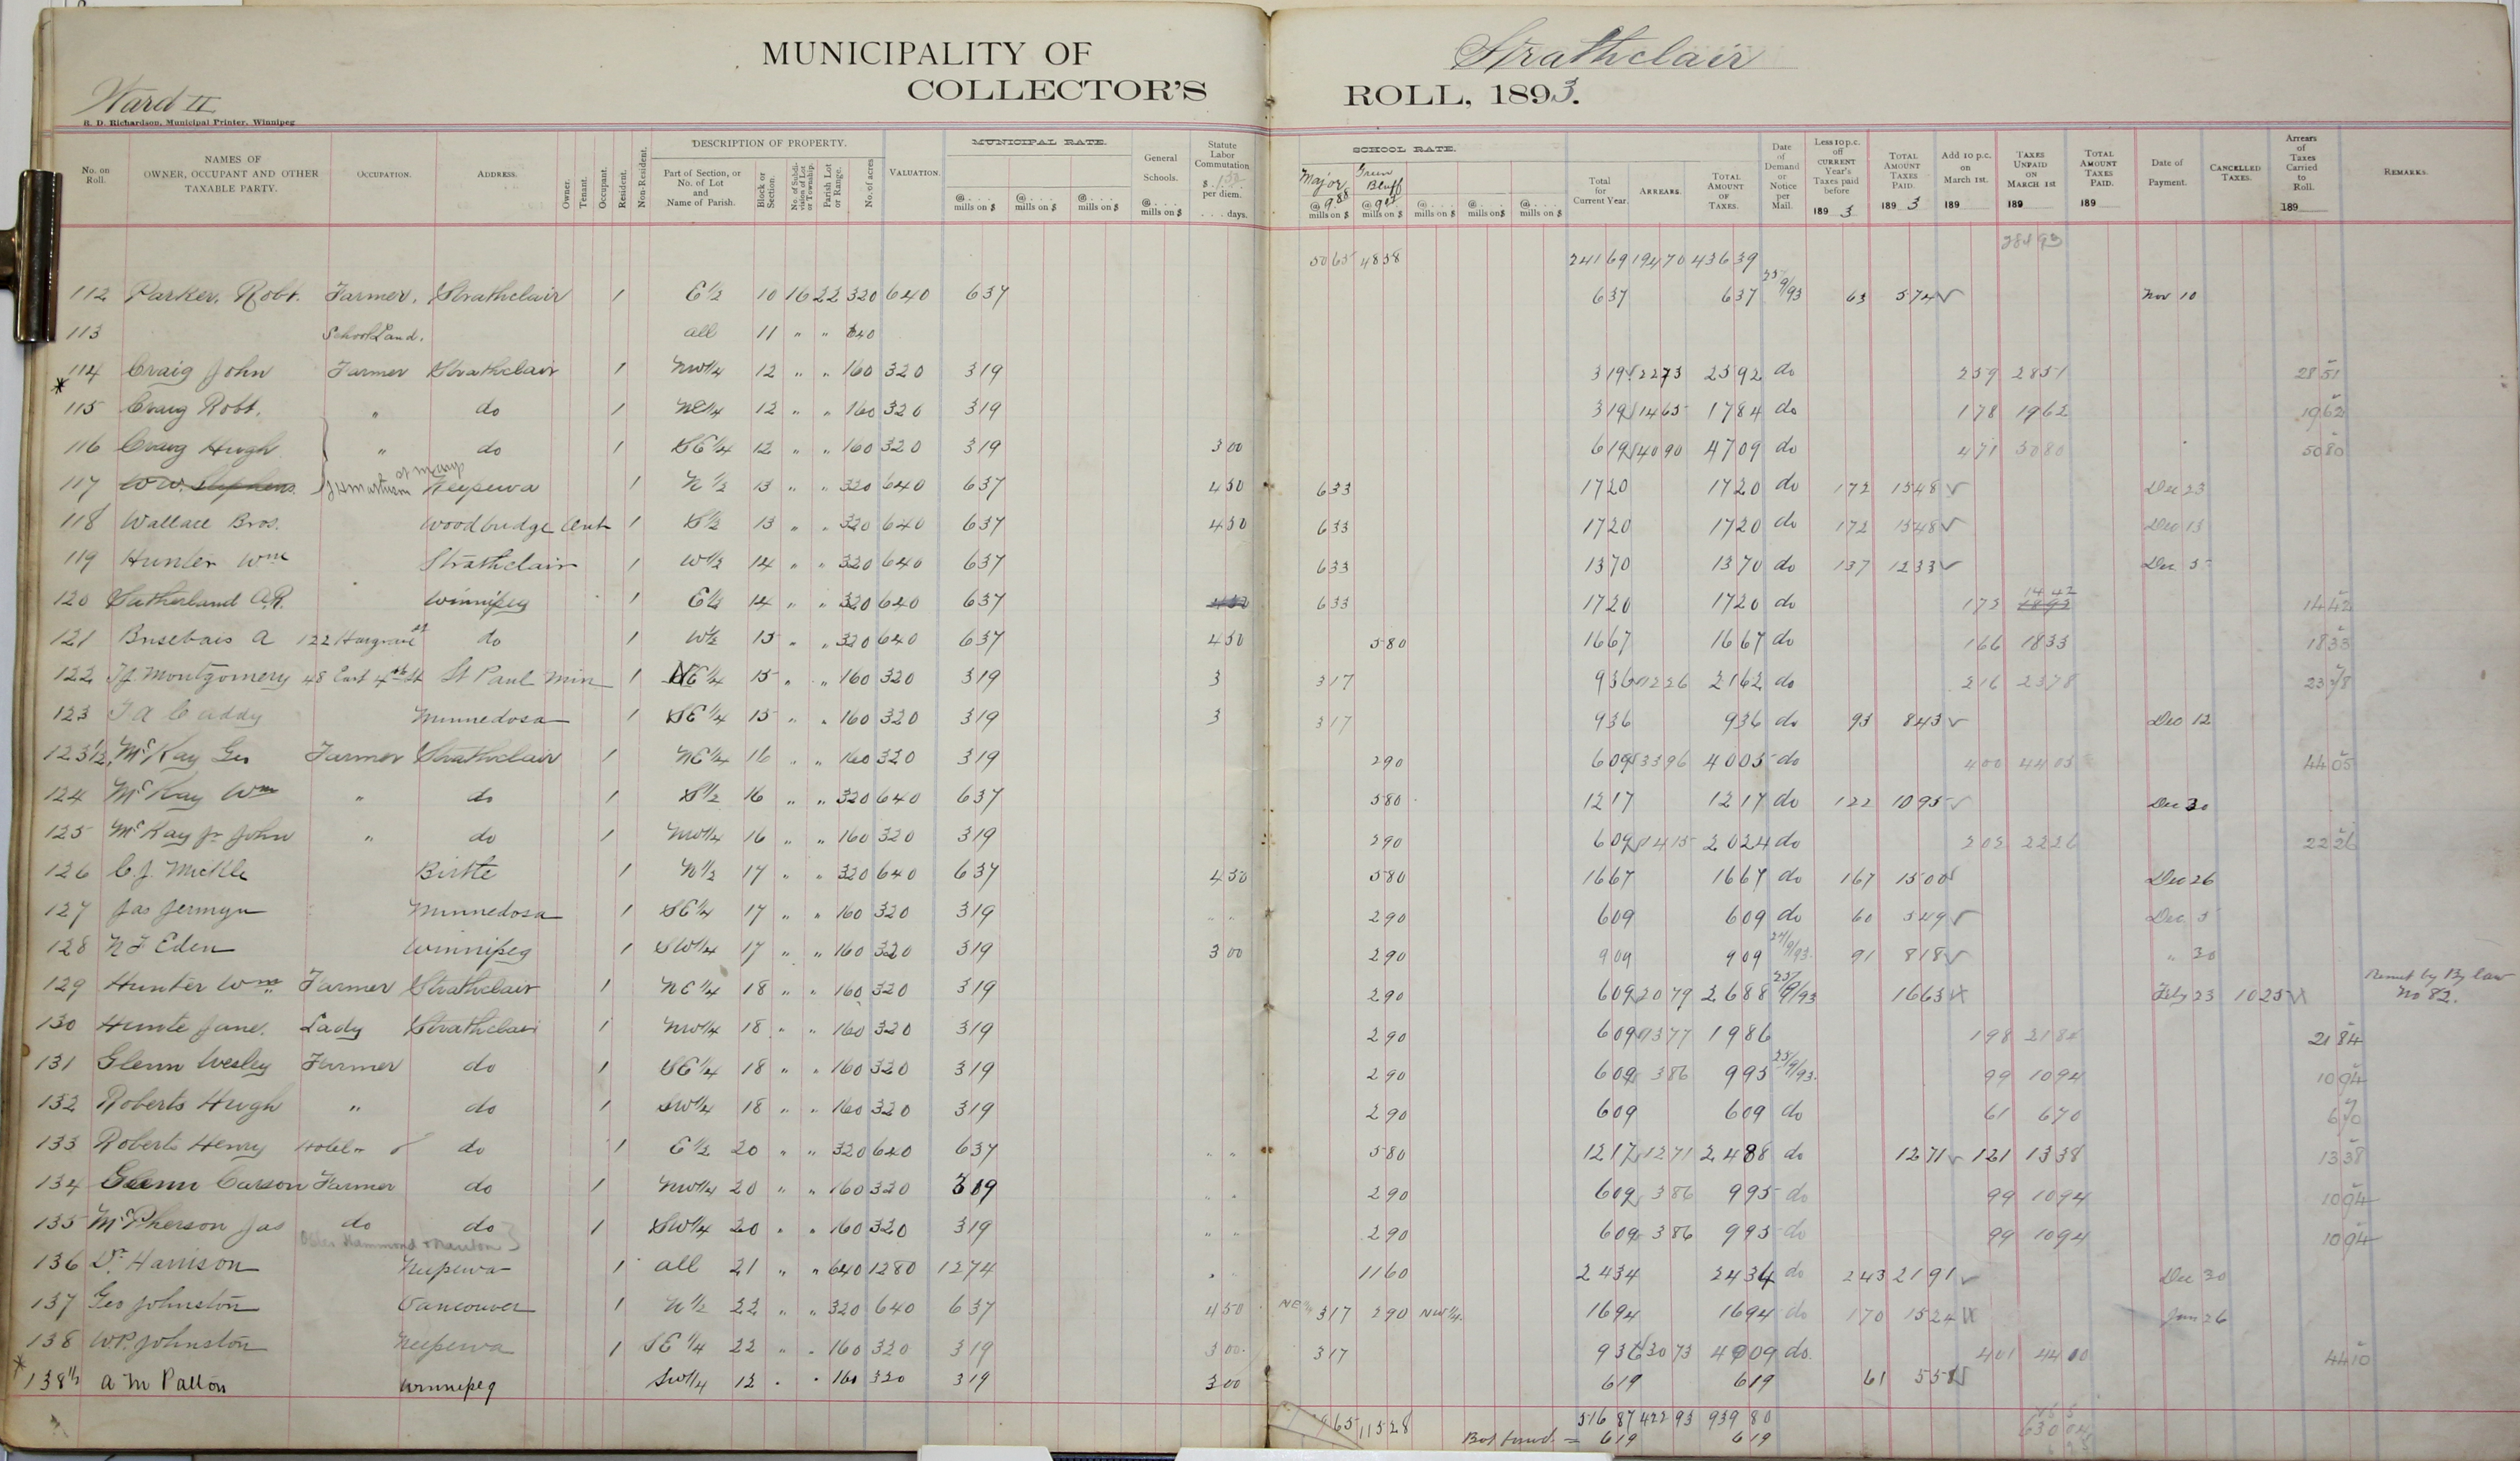 MUNICIPALITY OF Strathclair
COLLECTOR'S ROLL, 1893.
Ward II
R. D. Richardson, Municipal Printer, Winnipeg
No. on Roll. NAMES OF OWNER, OCCUPANT AND OTHER TAXABLE PARTY. OCCUPATION. ADDRESS. Owner. Tenant. Occupant. Resident. Non-Resident. DESCRIPTION OF PROPERTY. Part of Section, or No. of Lot and Name of Parish. Block or Section. No. of Subdivision of Lot or Township. Parish Lot or Range. No. of acres VALUATION. MUNICIPAL RATE. @ . . . mills on $ @ . . . mills on $ @ . . . mills on $ General Schools. @ . . . mills on $ Statute Labor Commutation $ 1.50 per diem. . . . . days. SCHOOL RATE. Major @ 9 88 mills on $ Green Bluff @ mills on $ @ . . . mills on $ @ . . . mills on $ @ . . . mills on $ Total for Current Year. ARREARS. TOTAL AMOUNT OF TAXES. Date of Demand or Notice per Mail. Less 10 p.c. off CURRENT Year's Taxes paid before 189 3 TOTAL AMOUNT TAXES PAID. 189 3 Add 10 p.c. on March 1st. 189 TAXES UNPAID ON MARCH 1st 189 TOTAL AMOUNT TAXES PAID. 189 Date of Payment. CANCELLED TAXES. Arrears of Taxes Carried to Roll. 189 REMARKS.
50 65 48 58 241 69 194 70 436 39
112 Parker, Robt. Farmer, Strathclair 1 E 1/2 10 16 22 320 640 6 37 6 37 6 37 25/9/93 63 5 74 Nov 10
113 School Land. all 11 " " 640
* 114 Craig John Farmer Strathclair 1 NW 1/4 12 " " 160 320 3 19 3 19 22 73 25 92 do 2 59 28 51 28 51
115 Craig Robt. " do 1 NE 1/4 12 " " 160 320 3 19 3 19 14 65 17 84 do 1 78 19 62 19 62
116 Craig Hugh " do 1 SE 1/4 12 " " 160 320 3 19 3 00 6 19 40 90 47 09 do 4 71 50 80 50 80
117 W W. Stephens Neepewa 1 N 1/2 13 " " 320 640 6 37 4 50 6 33 17 20 17 20 do 1 72 15 48 Dec 23
118 Wallace Bros. Woodbridge Ont 1 S 1/2 13 " " 320 640 6 37 4 50 6 33 17 20 17 20 do 1 72 15 48 Dec 13
119 Hunter Wm Strathclair 1 W 1/2 14 " " 320 640 6 37 6 33 13 70 13 70 do 1 37 12 33 Dec 5
120 Sutherland A.R. Winnipeg 1 E 1/2 14 " " 320 640 6 37 4 50 6 33 17 20 17 20 do 1 73 14 42 18 93 14 42
121 Brisebais A 122 Hargrave St do 1 W 1/2 15 " " 320 640 6 37 4 50 5 80 16 67 16 67 do 1 66 18 33 18 33
122 T J Montgomery 48 East 4th St St Paul Min 1 NE 1/4 15 " " 160 320 3 19 3 3 17 9 36 12 26 21 62 do 2 16 23 78 23 78
123 T A Caddy Minnedosa 1 SE 1/4 15 " " 160 320 3 19 3 3 17 9 36 9 36 do 93 8 43 Dec 12
123 1/2 McKay Geo Farmer Strathclair 1 NE 1/4 16 " " 160 320 3 19 2 90 6 09 33 96 40 05 do 4 00 44 05 44 05
124 McKay Wm " do 1 S 1/2 16 " " 320 640 6 37 5 80 12 17 12 17 do 1 22 10 95 Dec 30
125 McKay Jr John " do 1 NW 1/4 16 " " 160 320 3 19 2 90 6 09 14 15 20 24 do 2 02 22 26 22 26
126 C. J. Mickle Birtle 1 N 1/2 17 " " 320 640 6 37 4 50 5 80 16 67 16 67 do 1 67 15 00 Dec 26
127 Jas Jermyn Minnedosa 1 SE 1/4 17 " " 160 320 3 19 " " 2 90 6 09 6 09 do 60 5 49 Dec 5
128 N F Eden Winnipeg 1 SW 1/4 17 " " 160 320 3 19 3 00 2 90 9 09 9 09 24/9/93 91 8 18 " 30
129 Hunter Wm Farmer Strathclair 1 NE 1/4 18 " " 160 320 3 19 2 90 6 09 20 79 26 88 25/9/93 16 63 Feby 23 10 25 Remit by By law No 82.
130 Hunte Jane. Lady Strathclair 1 NW 1/4 18 " " 160 320 3 19 2 90 6 09 13 77 19 86 1 98 21 84 21 84
131 Glenn Wesley Farmer do 1 SE 1/4 18 " " 160 320 3 19 2 90 6 09 3 86 9 95 25/9/93 99 10 94 10 94
132 Roberts Hugh " do 1 SW 1/4 18 " " 160 320 3 19 2 90 6 09 6 09 do 61 6 70 6 70
133 Roberts Henry Hotel do 1 E 1/2 20 " " 320 640 6 37 " " 5 80 12 17 12 71 24 88 do 12 71 1 21 13 38 13 38
134 Glenn Carson Farmer do 1 NW 1/4 20 " " 160 320 3 19 " " 2 90 6 09 3 86 9 95 do 99 10 94 10 94
135 McPherson Jas do do 1 SW 1/4 20 " " 160 320 3 19 " " 2 90 6 09 3 86 9 95 do 99 10 94 10 94
Osler Hammond & Nanton
136 Dr. Harrison Neepewa 1 all 21 " " 640 1280 12 74 " " 11 60 24 34 24 34 do 2 43 21 91 Dec 30
137 Geo Johnston Vancouver 1 N 1/2 22 " " 320 640 6 37 4 50 NE 1/4 3 17 2 90 NW 1/4. 16 94 16 94 do 1 70 15 24 Jan 26
138 W.P. Johnston Neepewa 1 SE 1/4 22 " " 160 320 3 19 3 00 3 17 9 36 30 73 40 09 do 4 01 44 10 44 10
* 138 1/2 A M Patton Winnipeg SW 1/4 12 " " 160 320 3 19 3 00 6 19 6 19 61 5 58
65 115 28 516 87 422 93 939 80
= 6 19 6 19